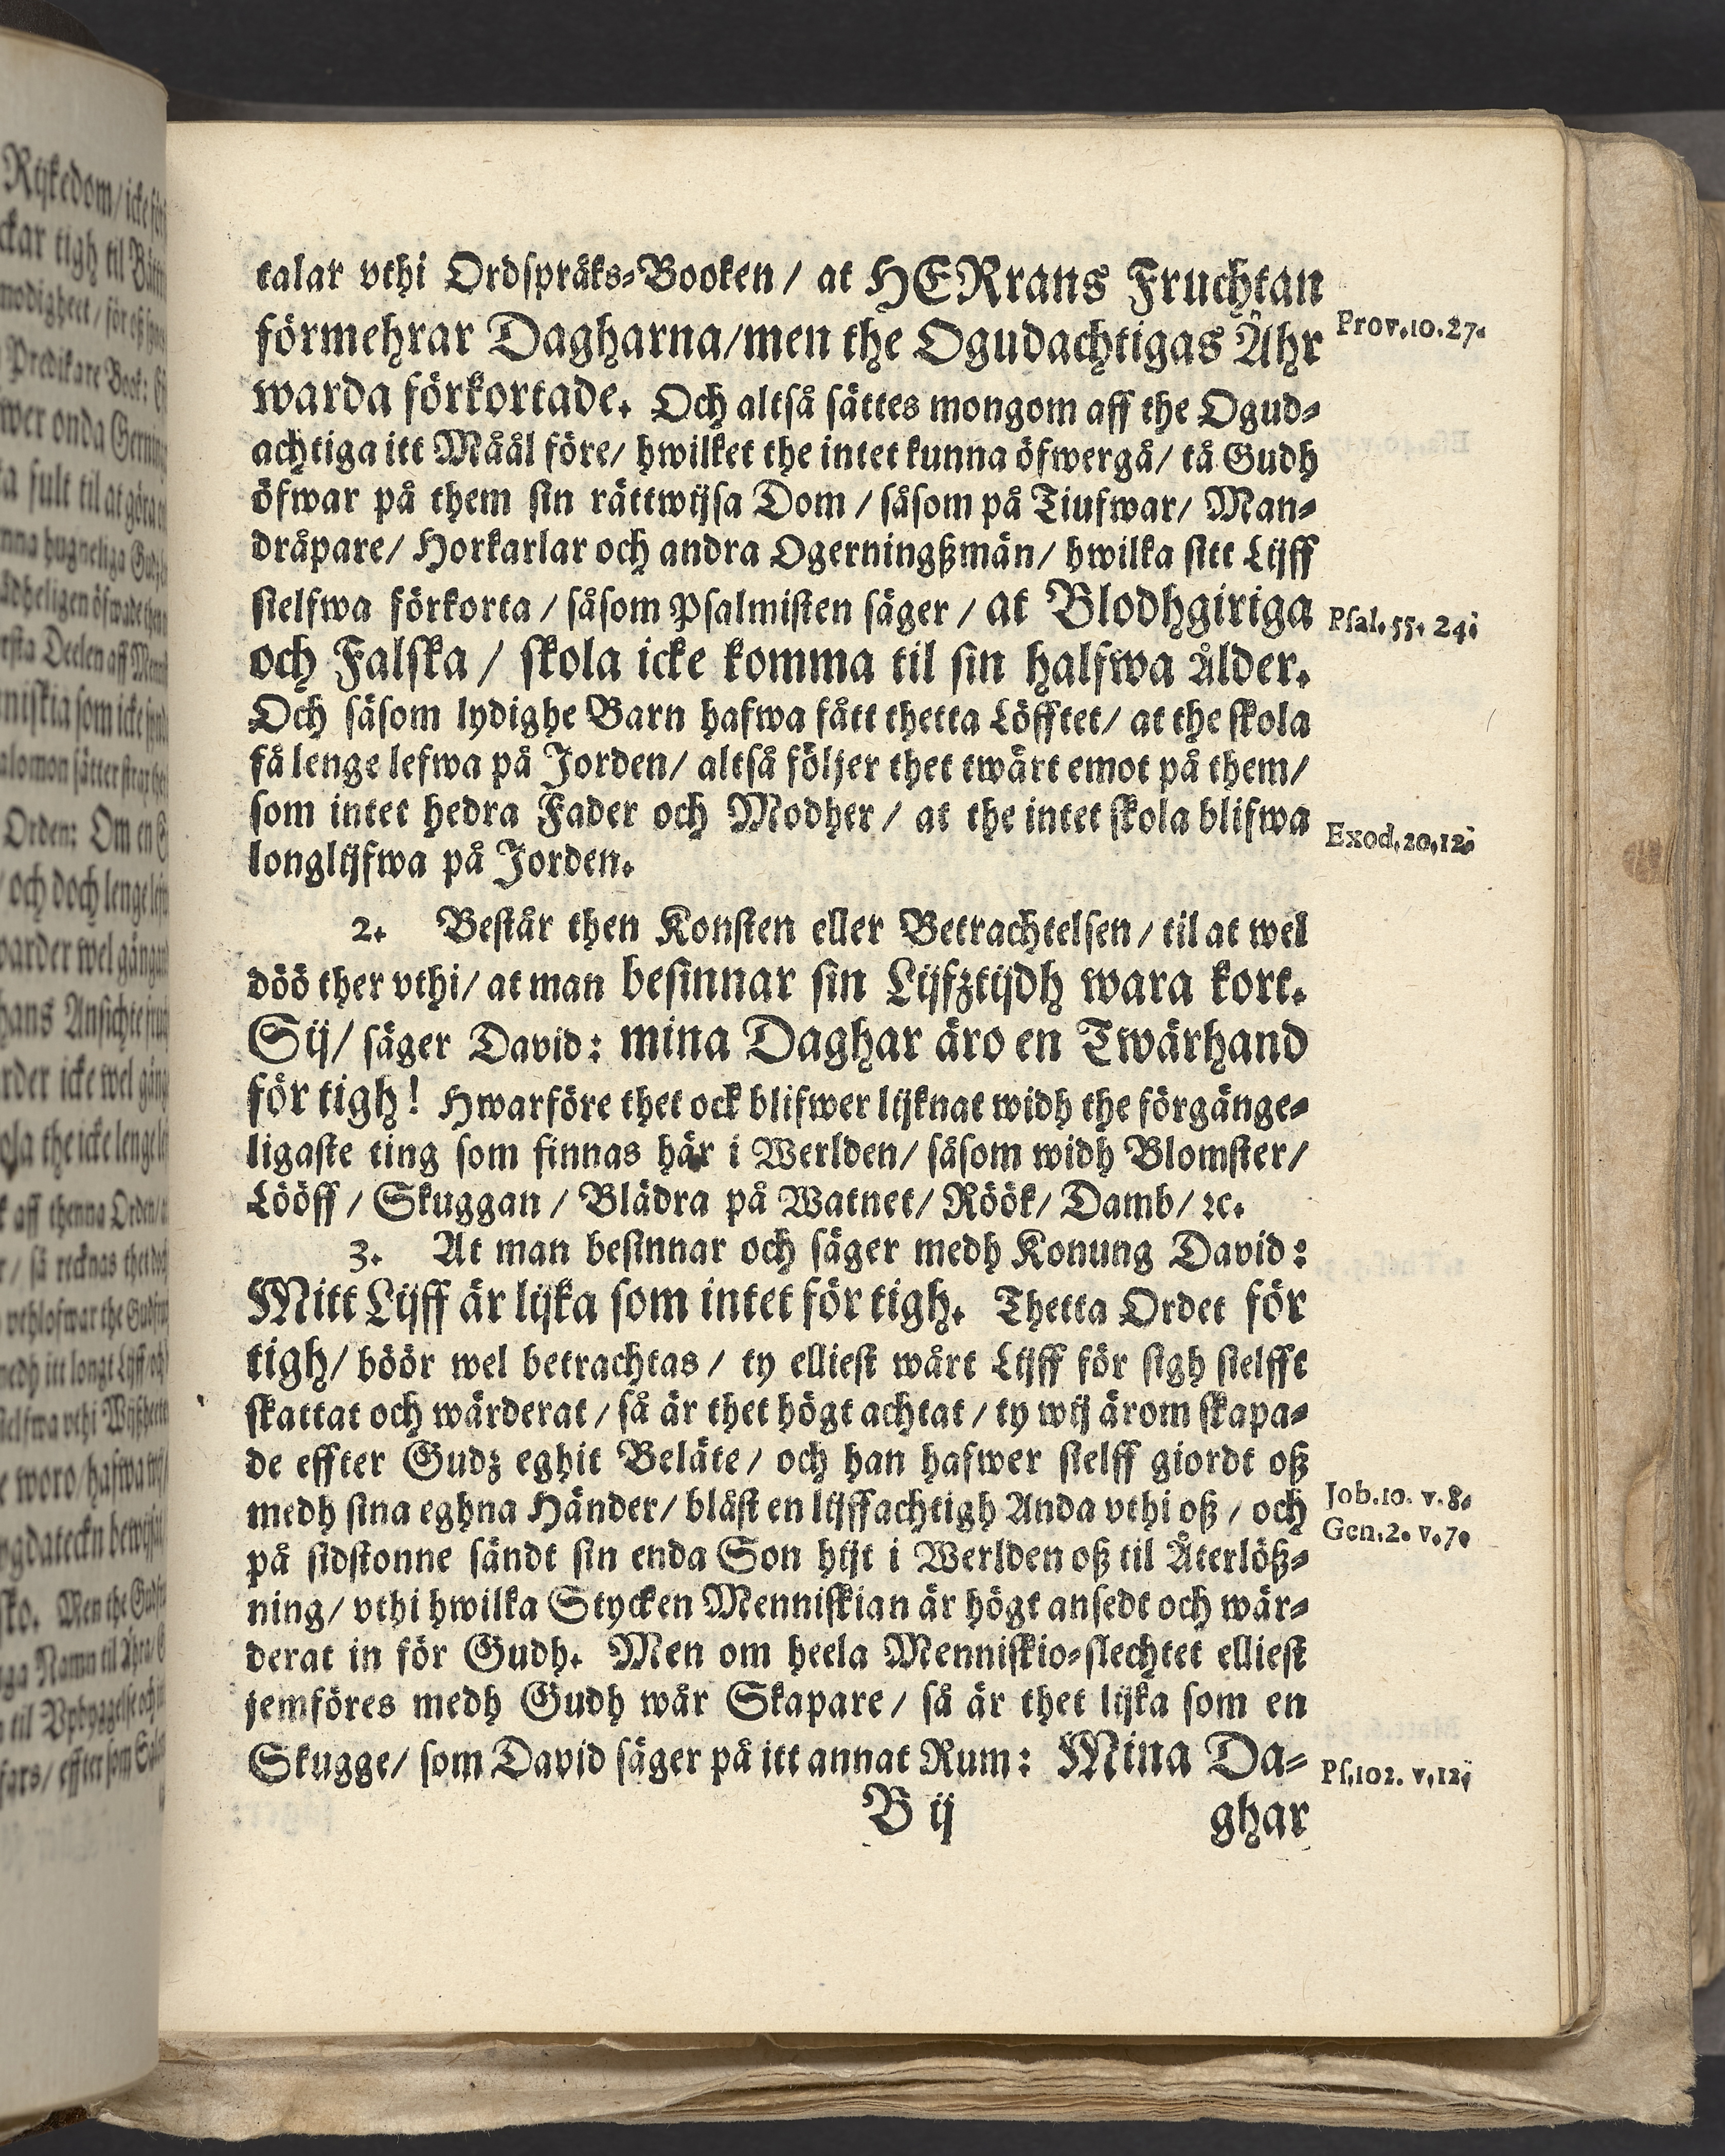 talar vthi Ordspråks-Booken / at HERrans Fruchtan
förmehrar Dagharna/men the Ogudachtigas Åhr
warda förkortade. Och altså sättes mongom aff the Ogud-
achtiga itt Måål före/ hwilket the intet kunna öfwergå/ tå Gudh
öfwar på them sin rättwijsa Dom / såsom på Tiufwar/ Man-
dråpare/ Horkarlar och andra Ogerningßmän/ hwilka sitt Lijff
sielfwa förkorta / såsom Psalmisten säger / at Blodhgiriga
och Falska / skola icke komma til sin halfwa ålder.
Och såsom lydighe Barn hafwa fått thetta Löfftet/ at the skola
få lenge lefwa på Jorden/ altså följer thet twärt emot på them/
som intet hedra Fader och Modher / at the intet skola blifwa
longlijfwa på Jorden.
2. Består then Konsten eller Betrachtelsen / til at wel
döö ther vthi/ at man besinnar sin Lijfztijdh wara kort.
Sij/ säger David: mina Daghar äro en Twärhand
för tigh! Hwarföre thet ock blifwer lijknat widh the förgänge-
ligaste ting som finnas här i Werlden/ såsom widh Blomster/
Lööff / Skuggan / Blädra på Watnet/ Röök/ Damb/ ꝛc.
3. At man besinnar och säger medh Konung David:
Mitt Lijff är lijka som intet för tigh. Thetta Ordet för
tigh/ böör wel betrachtas / ty elliest wårt Lijff för sigh sielfft
skattat och wärderat / så är thet högt achtat / ty wij ärom skapa-
de effter Gudz eghit Beläte / och han hafwer sielff giordt oß
medh sina eghna Händer/ blåst en lijffachtigh Anda vthi oß / och
på sidstonne sändt sin enda Son hijt i Werlden oß til Återlöß-
ning/ vthi hwilka Stycken Menniskian är högt ansedt och wär-
derat in för Gudh. Men om heela Menniskio-slechtet elliest
jemföres medh Gudh wår Skapare / så är thet lijka som en
Skugge/ som David säger på itt annat Rum: Mina Da-
B ij
ghar
Prov.10.27.
Psal.55. 24.
Exod.20,12.
Job.10. v.8.
Gen.2. v.7.
Ps.102. v.12.